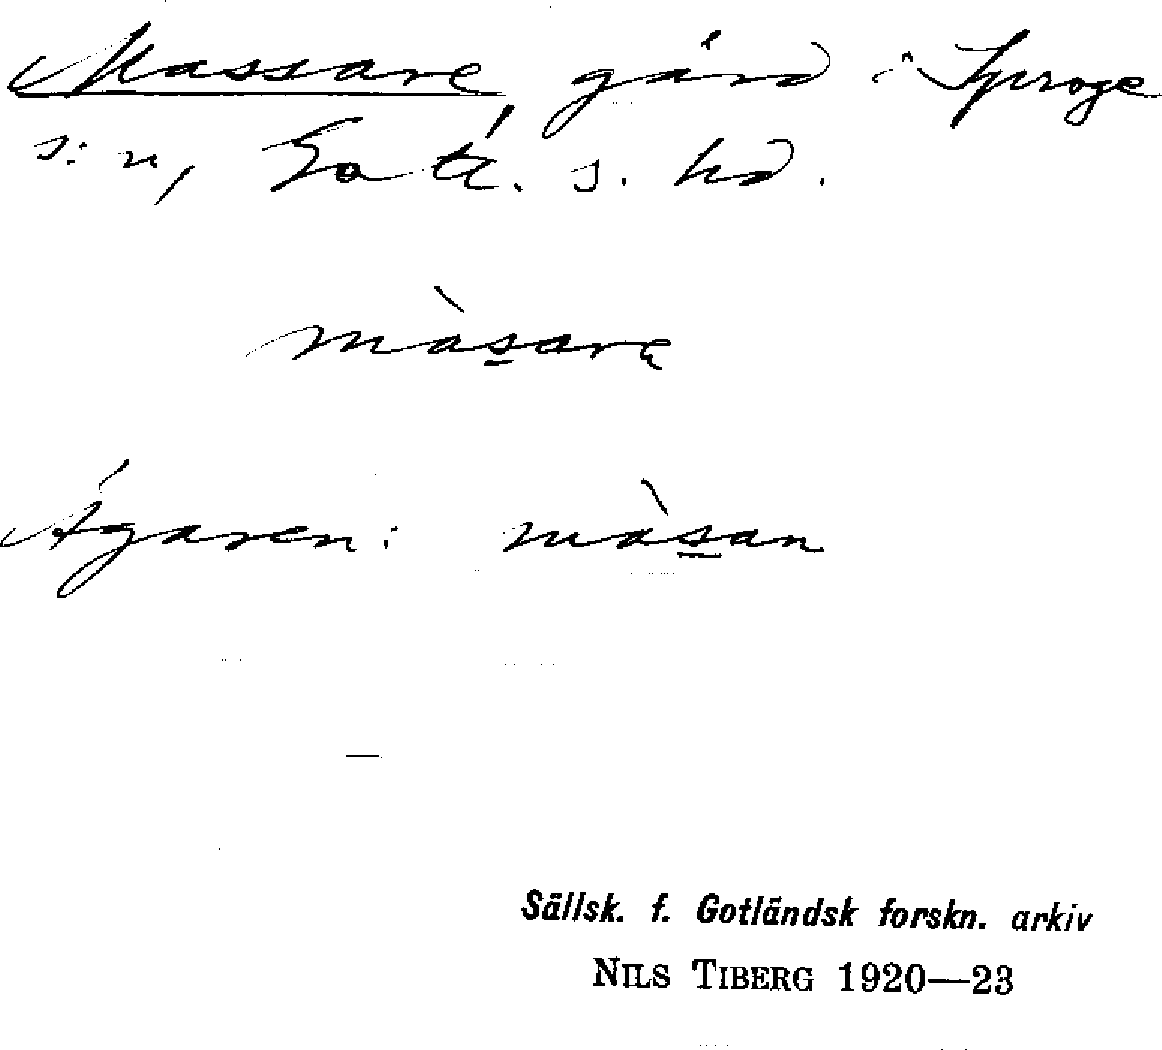 Massare gård i Sproge
s:n, Gotl. s. hd.
màsare
Ägaren: màsan
Sällsk. f. Gotländsk forskn. arkiv
NILS TIBERG 1920—23